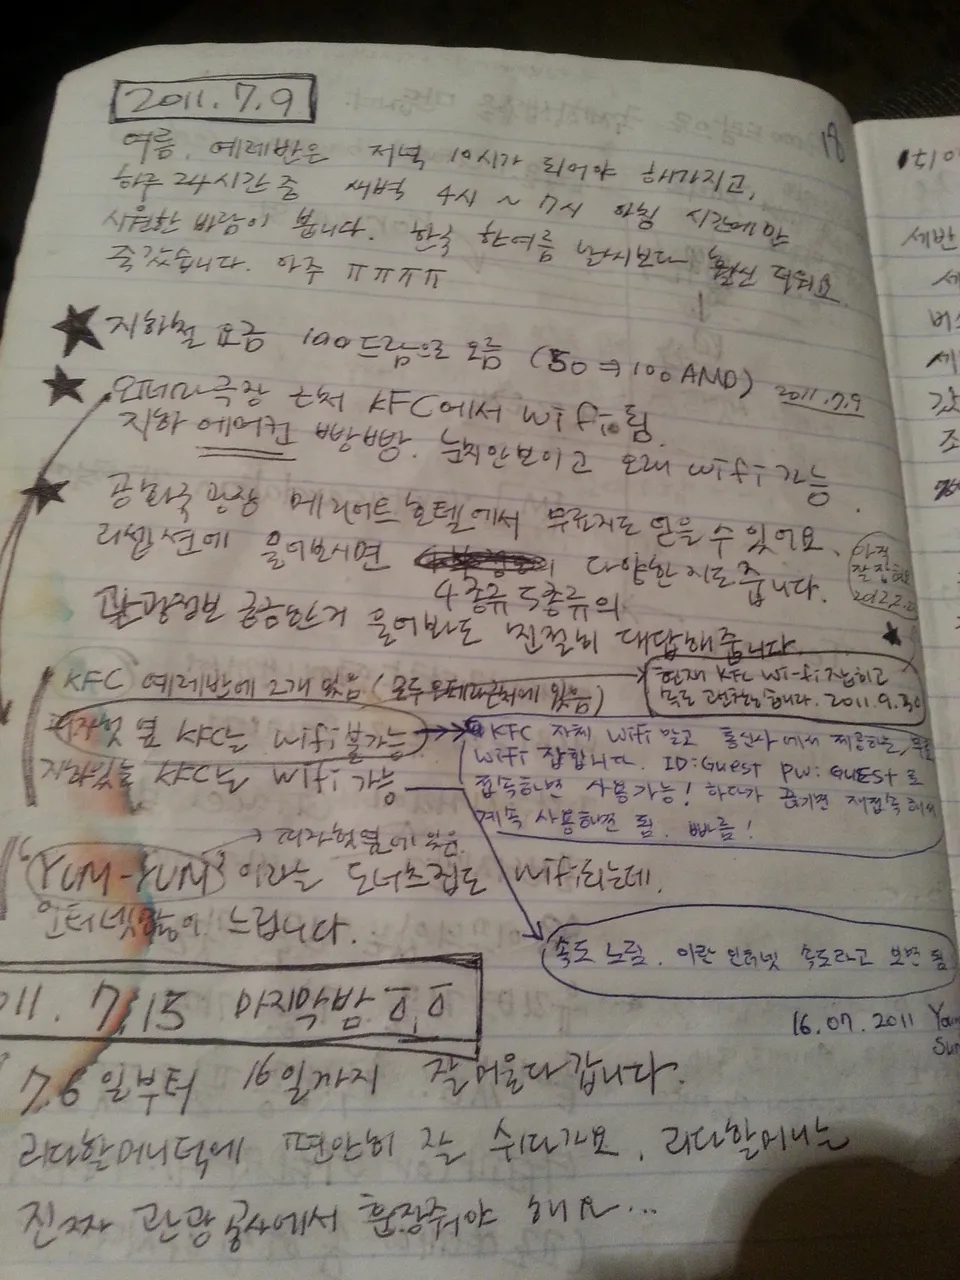 2011.7.9
18
여름, 예레반은 저녁 10시가 되어야 해가지고,
하루 24시간 중 새벽 4시 ~ 7시 아침 시간에만
시원한 바람이 붑니다. 한국 한여름 날씨보다 훨씬 더워요
죽갔습니다. 아주 ㅠㅠㅠㅠ
★ 지하철 요금 100드람으로 오름 (50 ⇒ 100 AMD) 2011.7.9
★ 오페라극장 근처 KFC에서 wifi 됨.
지하 에어컨 빵빵. 눈치안보이고 오래 wifi 가능
★ 공화국 광장 메리어트 호텔에서 무료지도 얻을 수 있어요.
리셉션에 물어보시면 다양한 지도 줍니다.
4종류 5종류의
아직
잘 잡혀요
관광정보 궁금한거 물어봐도 친절히 대답해줍니다.
KFC 예레반에 2개 있음 (모두 오페라근처에 있음)
현재 KFC Wi-fi 잡히고
속도 괜찮습니다. 2011.9.30
피자헛 옆 KFC는 wifi 불가능
지하있는 KFC는 wifi 가능
KFC 자체 wifi 말고 통신사에서 제공하는, 무료
wifi 잡힙니다. ID:Guest PW: GUEST 로
접속하면 사용가능! 하다가 끊기면 재접속해서
계속 사용하면 됨. 빠름!
→ 피자헛옆에 있은
"YUM-YUM" 이라는 도너츠집도 wifi되는데,
인터넷많이 느립니다.
속도 느림. 이란 인터넷 속도라고 보면 됨
16.07.2011
011. 7.15 마지막밤 ㅠ.ㅠ
7.6일부터 16일까지 잘머물다갑니다.
리다할머니댁에 편안히 잘 쉬다가요. 리다할머니는
진짜 관광공사에서 훈장줘야 해요...